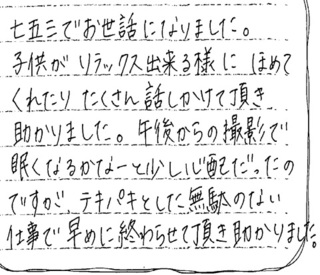 七五三でお世話になりました。
子供がリラックス出来る様に ほめて
くれたり たくさん話しかけて頂き
助かりました。午後からの撮影で
眠くなるかなーと少し心配だったの
ですが、テキパキとした無駄のない
仕事で早めに終わらせて頂き助かりました。